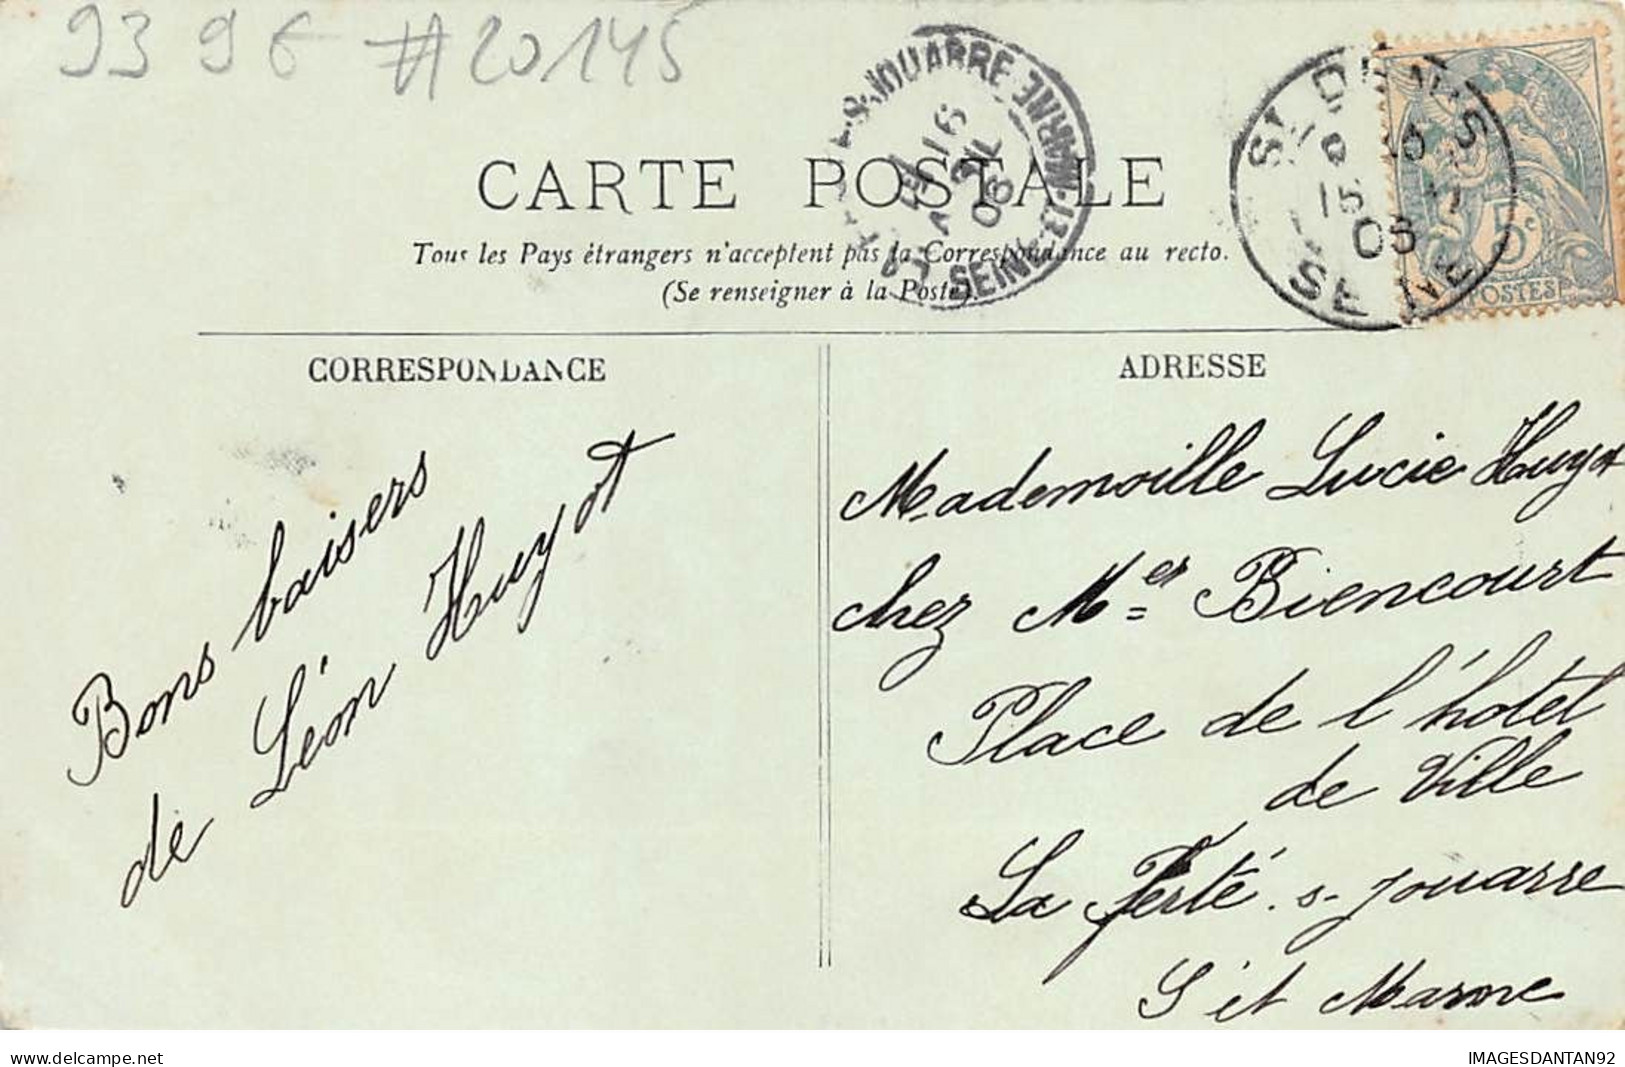 93 9€ #20145
CARTE POSTALE
Tous les Pays étrangers n'acceptent pas la Correspondance au recto.
(Se renseigner à la Poste).
S-JOUARRE
SEINE MARNE
16
08
ST DENIS
SEINE
15
08
5c
POSTES
CORRESPONDANCE
Bons baisers
de Léon Huyot
ADRESSE
Mademoille Lucie Huyot
chez Mer Biencourt
Place de l'hotel
de Ville
La Ferté. s- Jouarre
S et Marne
delcampe.net
IMAGESDANTAN92